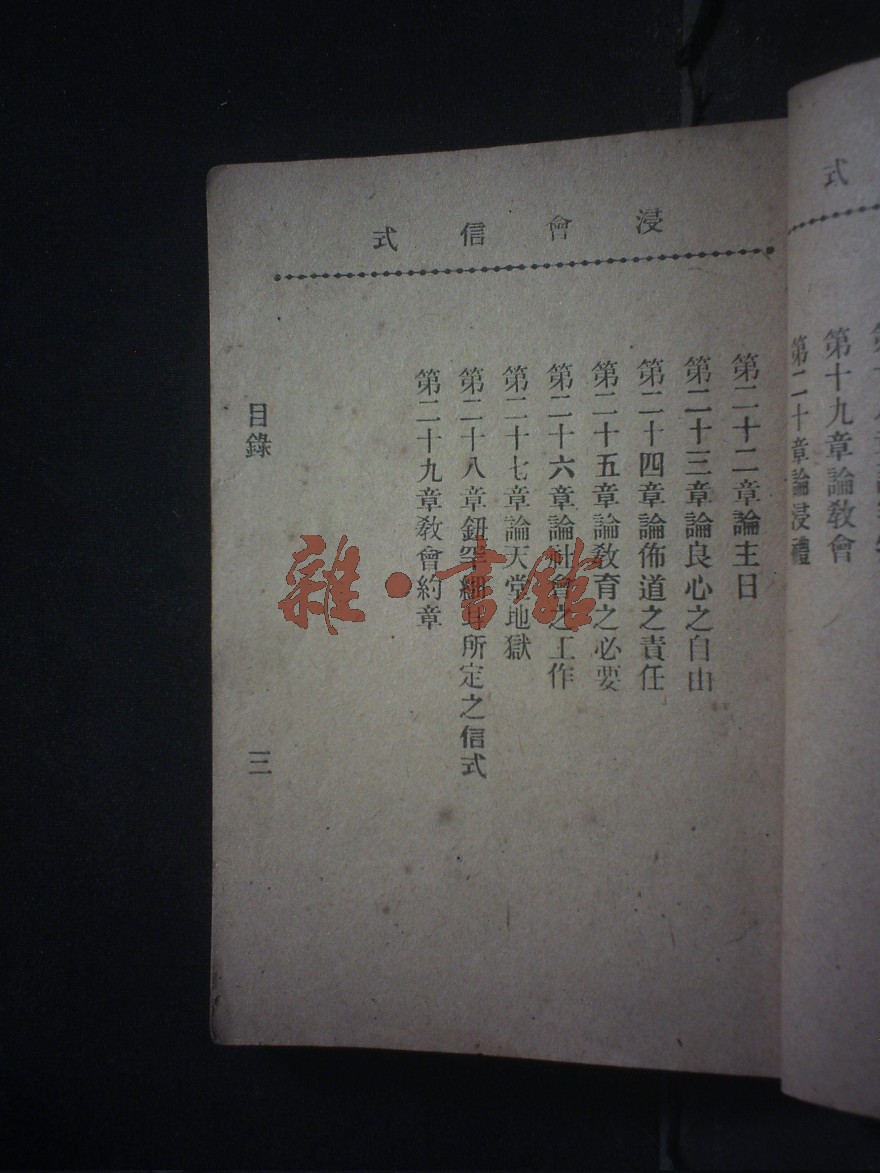 式
第十九章論教會
第二十章論浸禮
浸會信式
第二十二章論主日
第二十三章論良心之自由
第二十四章論佈道之責任
第二十五章論教育之必要
第二十六章論社會之工作
第二十七章論天堂地獄
第二十八章鈕罕所定之信式
第二十九章教會約章
目錄
三
雜·書館